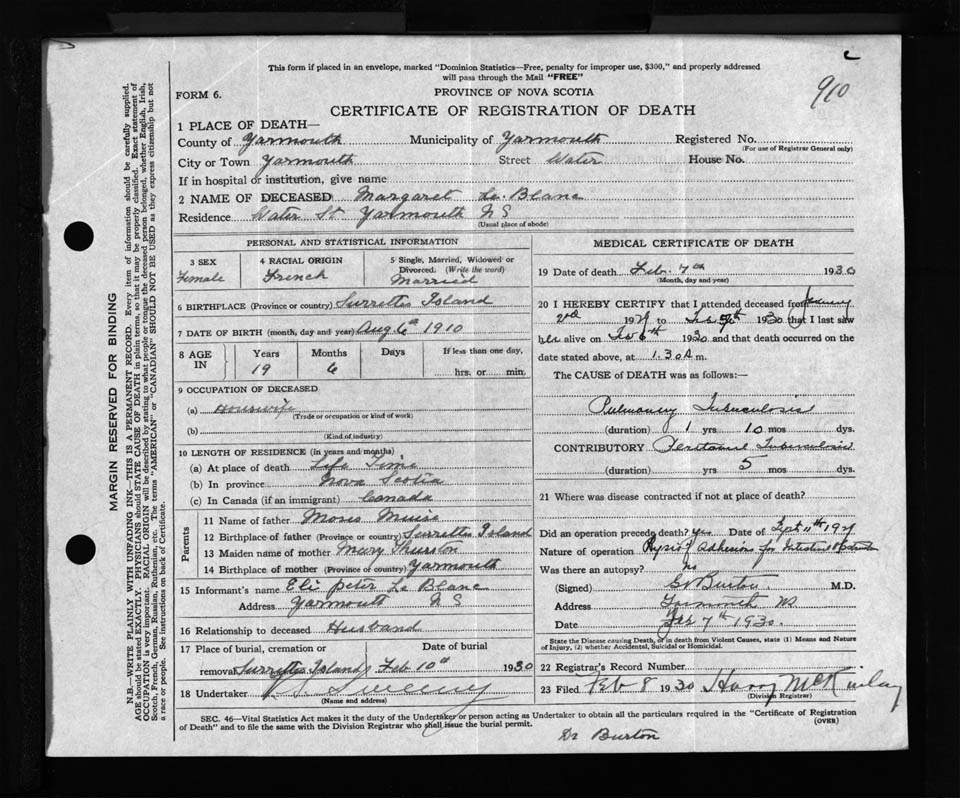 This form if placed in an envelope, marked "Dominion Statistics—Free, penalty for improper use, $300," and properly addressed
will pass through the Mail "FREE"
910
FORM 6.
PROVINCE OF NOVA SCOTIA
CERTIFICATE OF REGISTRATION OF DEATH
1 PLACE OF DEATH—
County of Yarmouth Municipality of Yarmouth Registered No.
(For use of Registrar General only)
City or Town Yarmouth Street Water House No.
If in hospital or institution, give name
2 NAME OF DECEASED Margaret Le Blanc
Residence Water St Yarmouth N S
(Usual place of abode)
PERSONAL AND STATISTICAL INFORMATION
3 SEX 4 RACIAL ORIGIN 5 Single, Married, Widowed or
Divorced. (Write the word)
Female French Married
6 BIRTHPLACE (Province or country) Surrettes Island
7 DATE OF BIRTH (month, day and year) Aug 6th 1910
8 AGE IN Years Months Days If less than one day,
19 6 hrs. or min.
9 OCCUPATION OF DECEASED
(a) Housewife
(Trade or occupation or kind of work)
(b)
(Kind of industry)
10 LENGTH OF RESIDENCE (in years and months)
(a) At place of death Life Time
(b) In province Nova Scotia
(c) In Canada (if an immigrant) Canada
Parents
11 Name of father Moses Muise
12 Birthplace of father (Province or country) Surrettes Island
13 Maiden name of mother Mary Thurston
14 Birthplace of mother (Province or country) Yarmouth
15 Informant's name Eli Peter Le Blanc
Address Yarmouth N S
16 Relationship to deceased Husband
17 Place of burial, cremation or Date of burial
removal Surrettes Island Feb 10th 1930
18 Undertaker Sweeny
(Name and address)
MEDICAL CERTIFICATE OF DEATH
19 Date of death Feb. 7th 1930
(Month, day and year)
20 I HEREBY CERTIFY that I attended deceased from January
2nd 1929 to Feb 7th 1930 that I last saw
her alive on Feb 6th 1930 and that death occurred on the
date stated above, at 1.30 A m.
The CAUSE of DEATH was as follows:—
Pulmonary Tuberculosis
(duration) 1 yrs 10 mos dys.
CONTRIBUTORY Peritoneal Tuberculosis
(duration) yrs 5 mos dys.
21 Where was disease contracted if not at place of death?
Did an operation precede death? Yes Date of Sept 11th 19
Nature of operation Adhesions for Intestinal
Was there an autopsy? no
(Signed) Burton M.D.
Address NS
Date Feb 7th 1930.
State the Disease causing Death, or in death from Violent Causes, state (1) Means and Nature
of Injury, (2) whether Accidental, Suicidal or Homicidal.
22 Registrar's Record Number
23 Filed Feb 8 1930 Harry McKinlay
(Division Registrar)
SEC. 46—Vital Statistics Act makes it the duty of the Undertaker or person acting as Undertaker to obtain all the particulars required in the "Certificate of Registration
of Death" and to file the same with the Division Registrar who shall issue the burial permit. (OVER)
Dr Burton
MARGIN RESERVED FOR BINDING
N.B.—WRITE PLAINLY WITH UNFADING INK—THIS IS A PERMANENT RECORD. Every item of information should be carefully supplied.
AGE should be stated EXACTLY. PHYSICIANS should STATE CAUSE OF DEATH in plain terms, so that it may be properly classified. Exact statement of
OCCUPATION is very important. RACIAL ORIGIN will be described by stating to what people or tongue the deceased person belonged, whether English, Irish,
Scotch, French, German, Russian, Ruthenian, etc. The terms "AMERICAN" or "CANADIAN" SHOULD NOT BE USED as they express citizenship but not
a race or people. See instructions on back of Certificate.